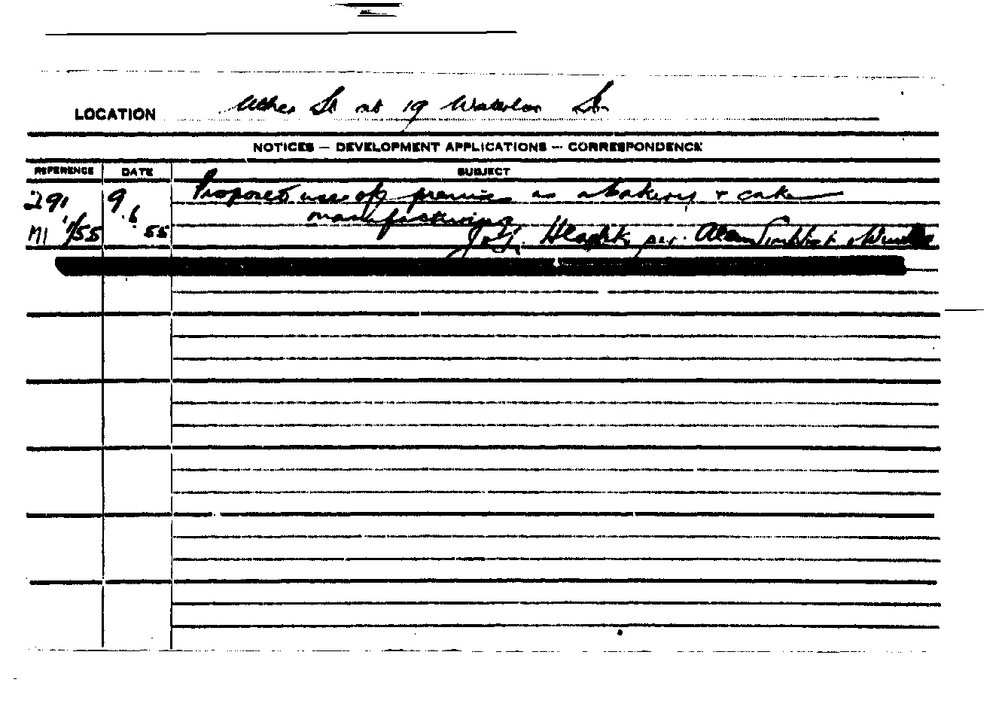 LOCATION Uther St at 19 Waterloo St
NOTICES — DEVELOPMENT APPLICATIONS — CORRESPONDENCE
REFERENCE DATE SUBJECT
291 9. Proposed use of premises as a bakery & cake
6 manufacturing
55 J. per. Alan